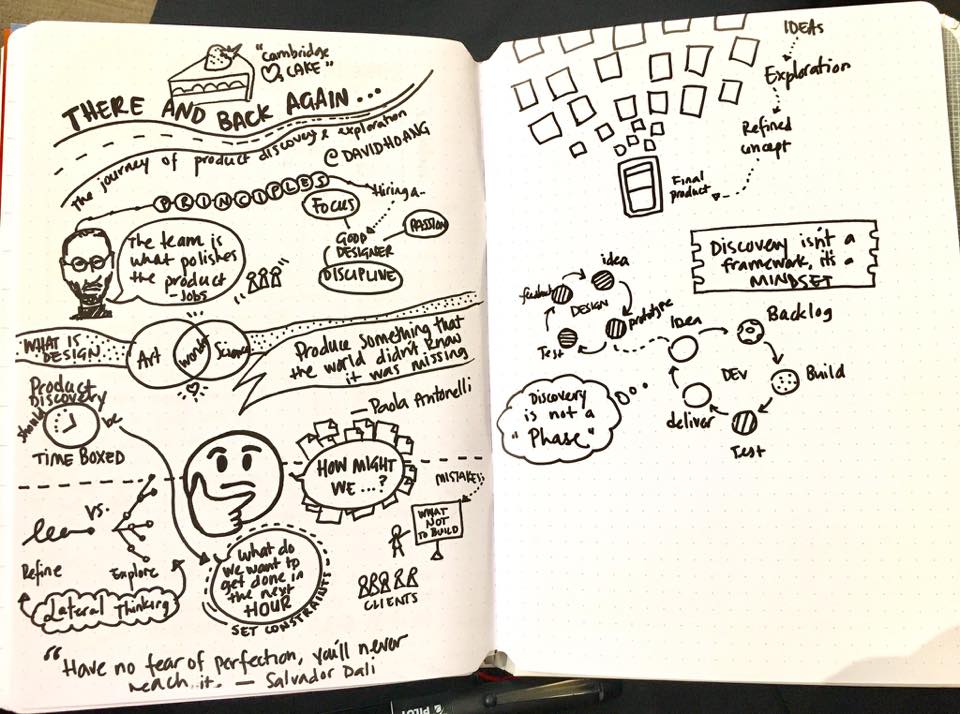 "Cambridge
CAKE"
THERE AND BACK AGAIN...
The journey of product discovery & exploration
@DAVIDHOANG
PRINCIPLES
Hiring a..
FOCUS
PASSION
GOOD
DESIGNER
DISCIPLINE
The team is
what polishes
the product
- JOBS
WHAT IS
DESIGN
Art
world
Science
Produce something that
the world didn't know
it was missing
— Paola Antonelli
Product
Discovery
should be
TIME BOXED
HOW MIGHT
WE ...?
MISTAKES
WHAT
NOT
TO BUILD
CLIENTS
VS.
Refine
Explore
Lateral Thinking
What do
we want to
get done in
the next
HOUR
SET CONSTRAINTS
"Have no fear of perfection, you'll never
reach it. — Salvador Dali
IDEAS
Exploration
Refined
concept
Final
product
Discovery isn't a
framework, it's a
MINDSET
idea
feedback
DESIGN
prototype
Test
Idea
Backlog
DEV
Build
deliver
Test
Discovery
is not a
"Phase"
PILOT